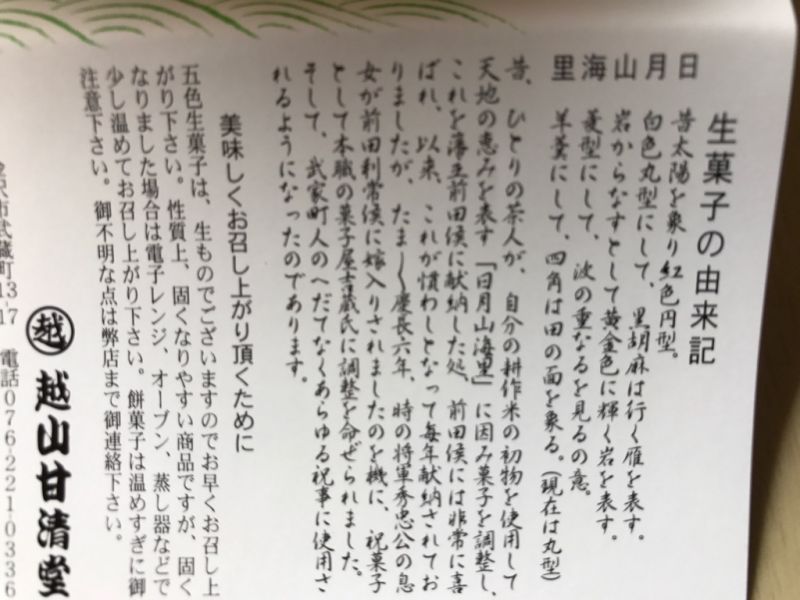 生菓子の由来記
日 昔太陽を象り紅色円型。
月 白色丸型にして、黒胡麻は行く雁を表す。
山 岩からなすとして黄金色に輝く岩を表す。
海 菱型にして、波の重なるを見るの意。
里 羊羹にして、四角は田の面を象る。(現在は丸型)
昔、ひとりの茶人が、自分の耕作米の初物を使用して
天地の恵みを表す「日月山海里」に因み菓子を調整し、
これを藩主前田侯に献納した処、前田侯には非常に喜
ばれ、以来、これが慣わしとなって毎年献納されてお
りましたが、たま〳〵慶長六年、時の将軍秀忠公の息
女が前田利常侯に嫁入りされましたのを機に、祝菓子
として本職の菓子屋吉蔵氏に調整を命ぜられました。
そして、武家町人のへだてなくあらゆる祝事に使用さ
れるようになったのであります。
美味しくお召し上がり頂くために
五色生菓子は、生ものでございますのでお早くお召し上
がり下さい。性質上、固くなりやすい商品ですが、固く
なりました場合は電子レンジ、オーブン、蒸し器などで
少し温めてお召し上がり下さい。餅菓子は温めすぎに御
注意下さい。御不明な点は弊店まで御連絡下さい。
越 越山甘清堂
金沢市武蔵町13-17 電話076-221-0336